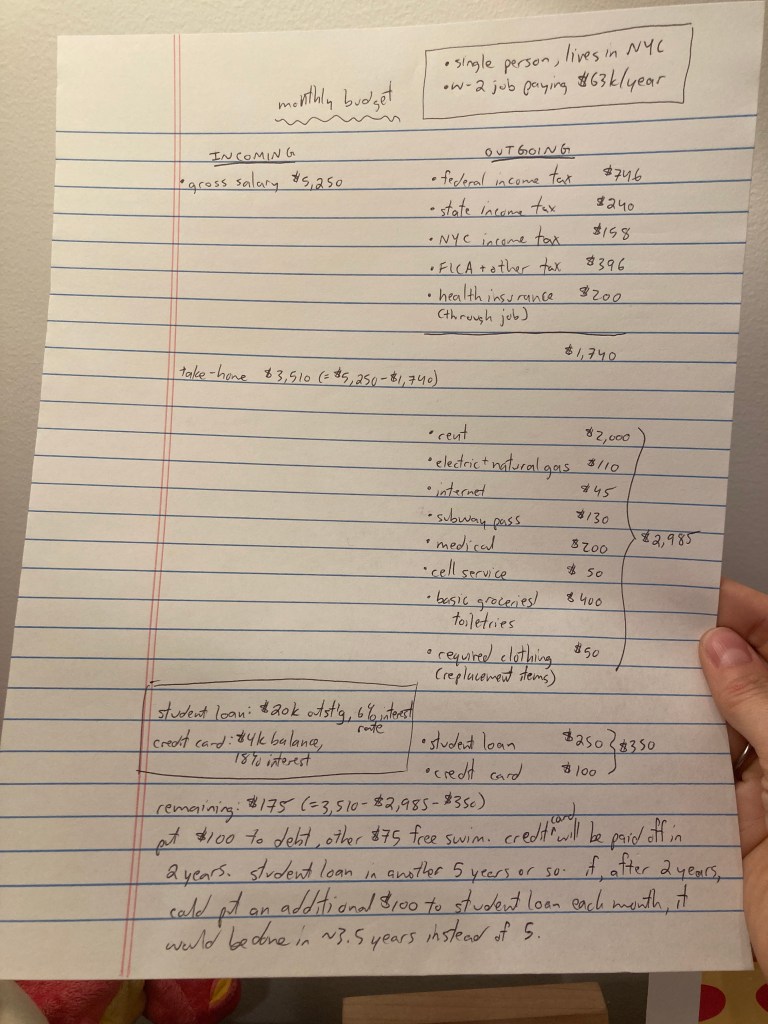 • single person, lives in NYC
• W-2 job paying $63k/year
monthly budget
INCOMING
• gross salary $5,250
OUTGOING
• federal income tax $746
• state income tax $240
• NYC income tax $158
• FICA + other tax $396
• health insurance $200
(through job)
$1,740
take-home $3,510 (= $5,250 - $1,740)
• rent $2,000
• electric + natural gas $110
• internet $45
• subway pass $130
• medical $200
• cell service $50
• basic groceries/ $400
toiletries
• required clothing $50
(replacement items)
$2,985
student loan: $20k outst'g, 6% interest
rate
credit card: $4k balance,
18% interest
• student loan $250
• credit card $100
$350
remaining: $175 (= 3,510 - $2,985 - $350)
put $100 to debt, other $75 free swim. credit card will be paid off in
2 years. student loan in another 5 years or so. if, after 2 years,
could put an additional $100 to student loan each month, it
would be done in ~3.5 years instead of 5.